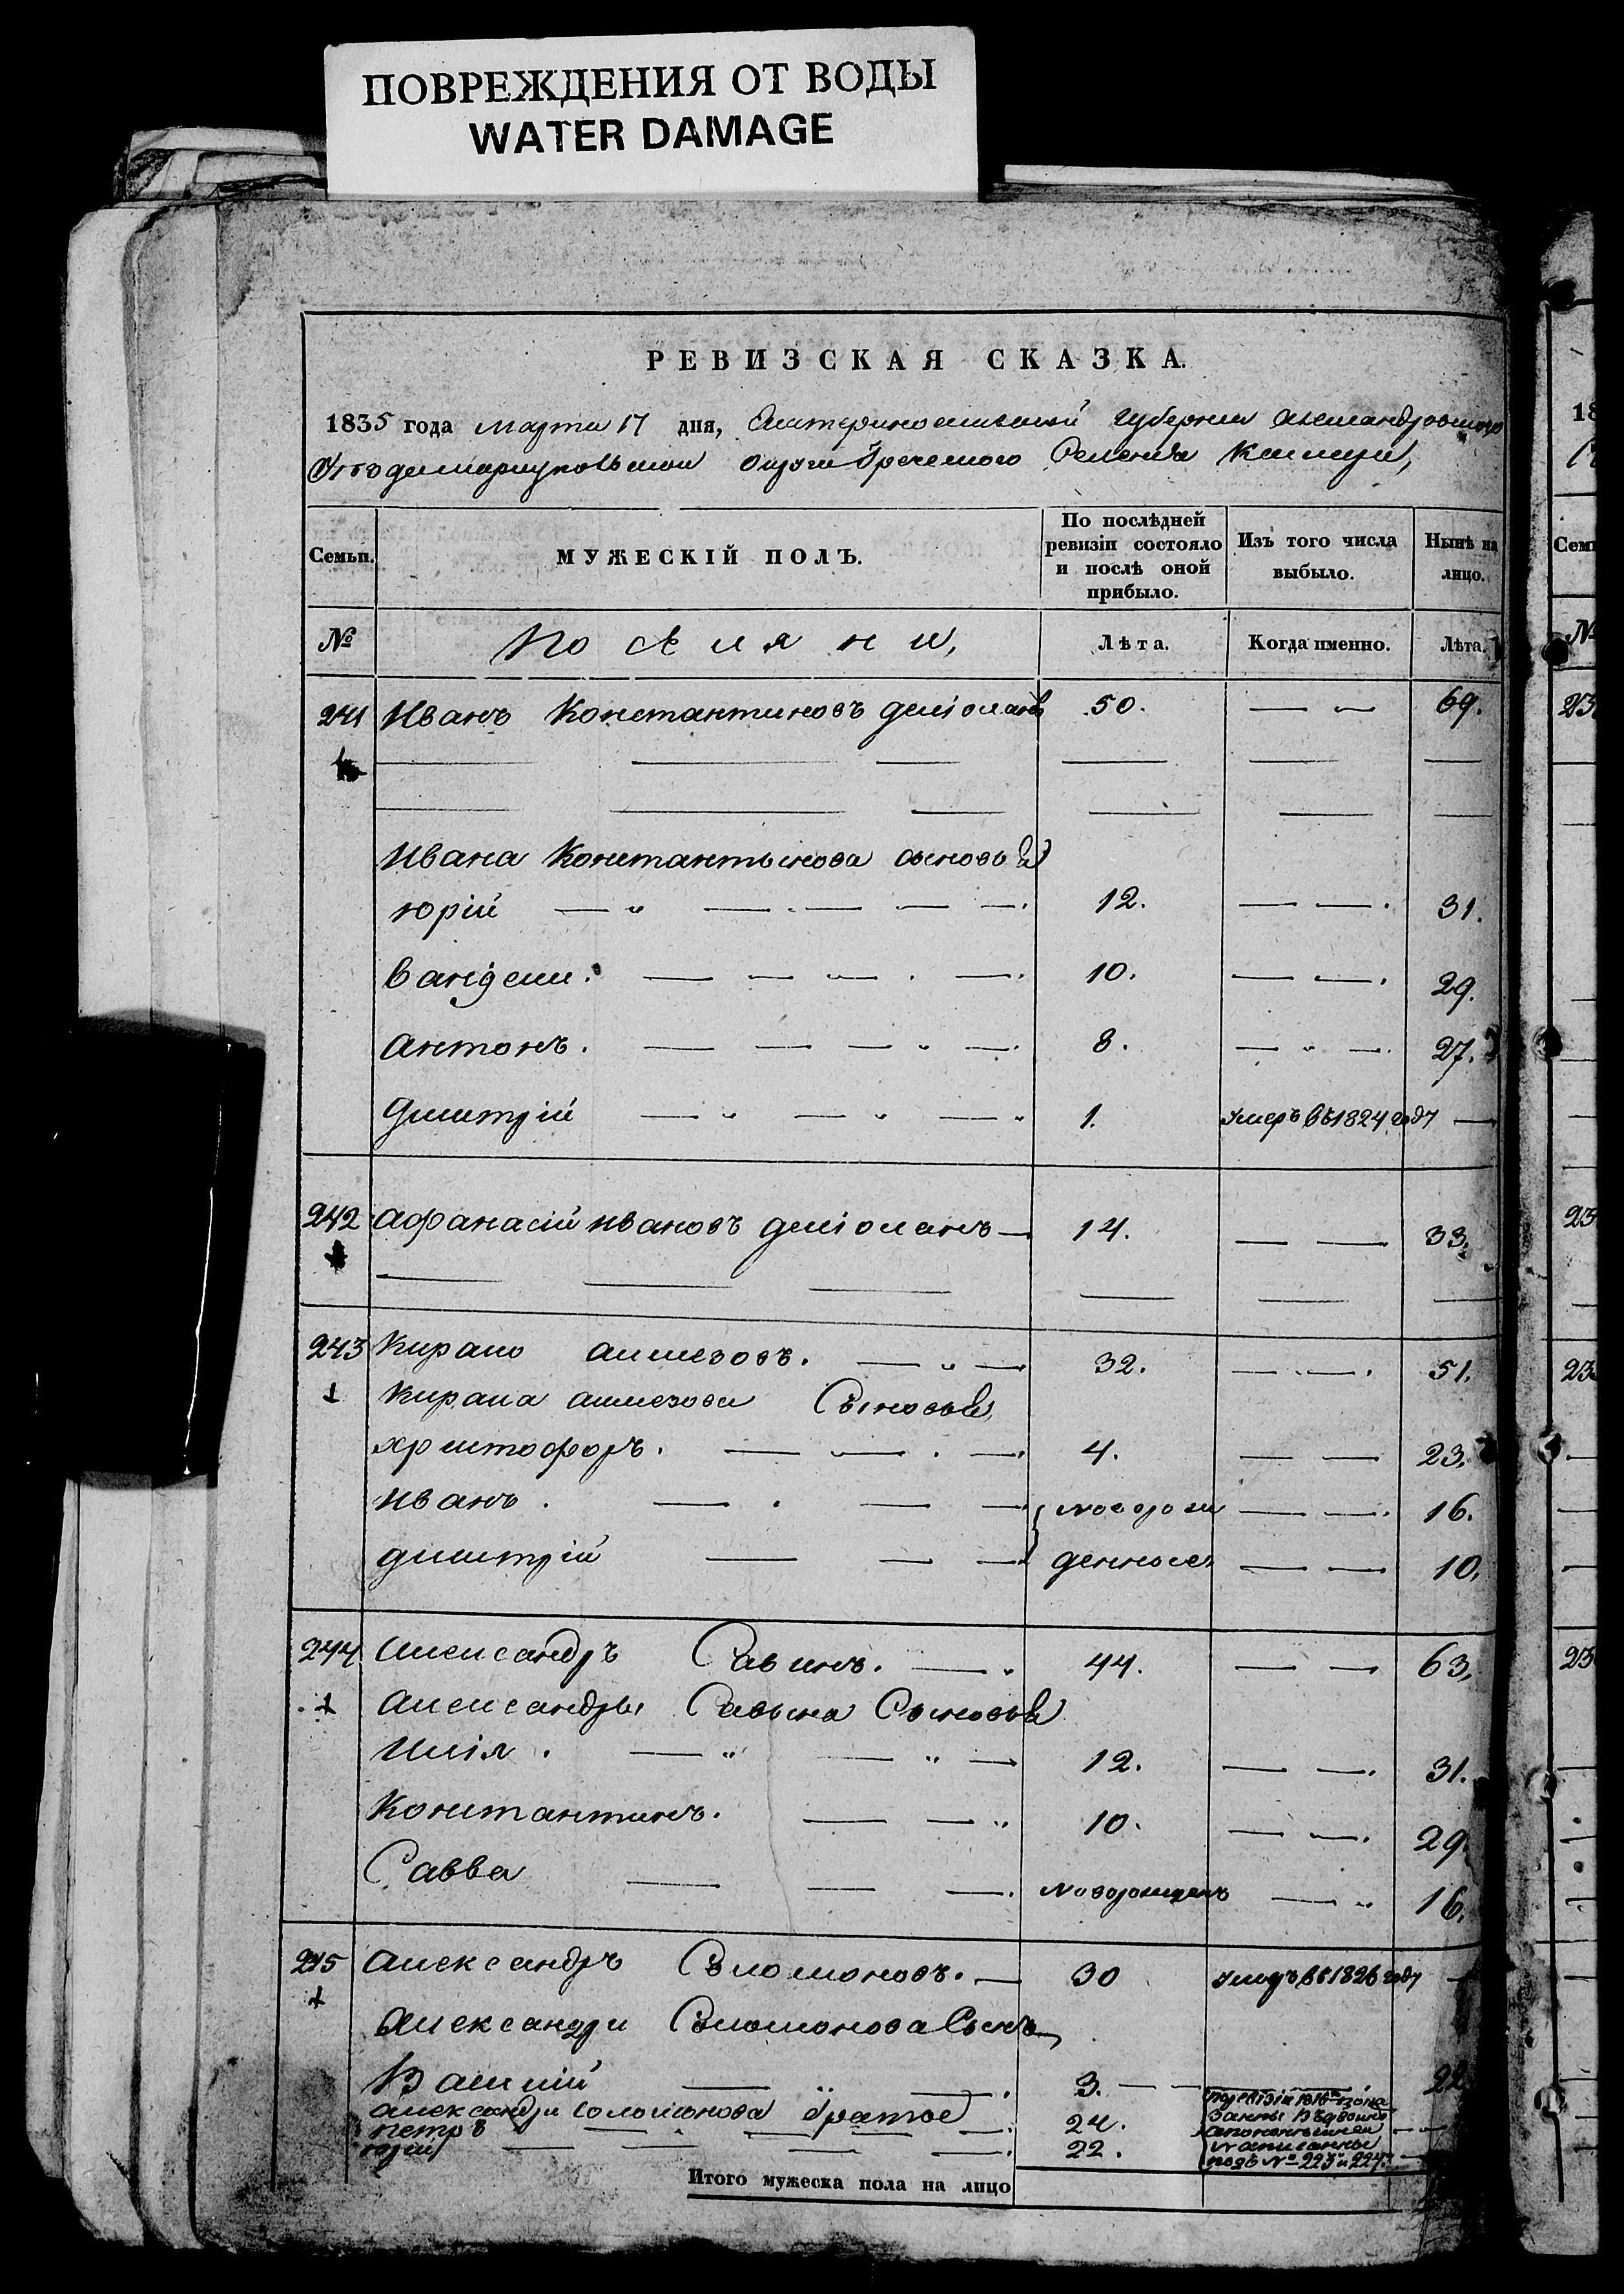 ПОВРЕЖДЕНИЯ ОТ ВОДЫ
WATER DAMAGE
РЕВИЗСКАЯ СКАЗКА.
1835 года марта 17 дня, Екатеринославской губернии Александровского
округа Греческого Селения
Семьи. МУЖЕСКІЙ ПОЛЪ. По послѣдней ревизіи состояло и послѣ оной прибыло. Изъ того числа выбыло. Нынѣ на лицо.
№ Поселяни, Лѣта. Когда именно. Лѣта.
241 Иванъ Константиновъ 50. 69.
Ивана Константинова сыновья
юрій 12. 31.
10. 29.
антонъ. 8. 27.
Дмитрій 1. умеръ въ 1824 году
242 афанасій ивановъ 14. 33.
243 Кирако 32. 51.
Сыновья
христофоръ. 4. 23.
Иванъ. новорож 16.
дмитрій денные 10.
244 александръ Савинъ. 44. 63.
александра Савина Сыновья
Илія. 12. 31.
Константинъ. 10. 29.
Савва новорожденъ 16.
245 александръ Соломоновъ. 30 умеръ въ 1826 году
александра Соломонова Сынъ
Василій 3. 22
александра соломонова братое
петръ 24.
юрій 22.
написанны
подъ № 223 и 224.
Итого мужеска пола на лицо
18
Семь
№
23
23
23
23